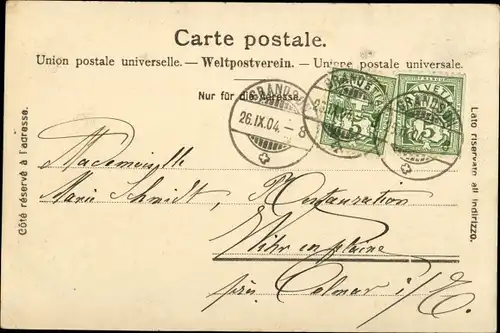 Carte postale.
Union postale universelle. — Weltpostverein. — Unione postale universale.
Nur für die Adresse.
GRANDSON
26.IX.04.–8
GRANDSON
GRANDSON
HELVETIA
5
5
Côté réservé à l'adresse.
Lato riservato all indirizzo.
Mademoiselle
Marie Schmidt, Restauration
Wihr en plaine
près Colmar i/E.